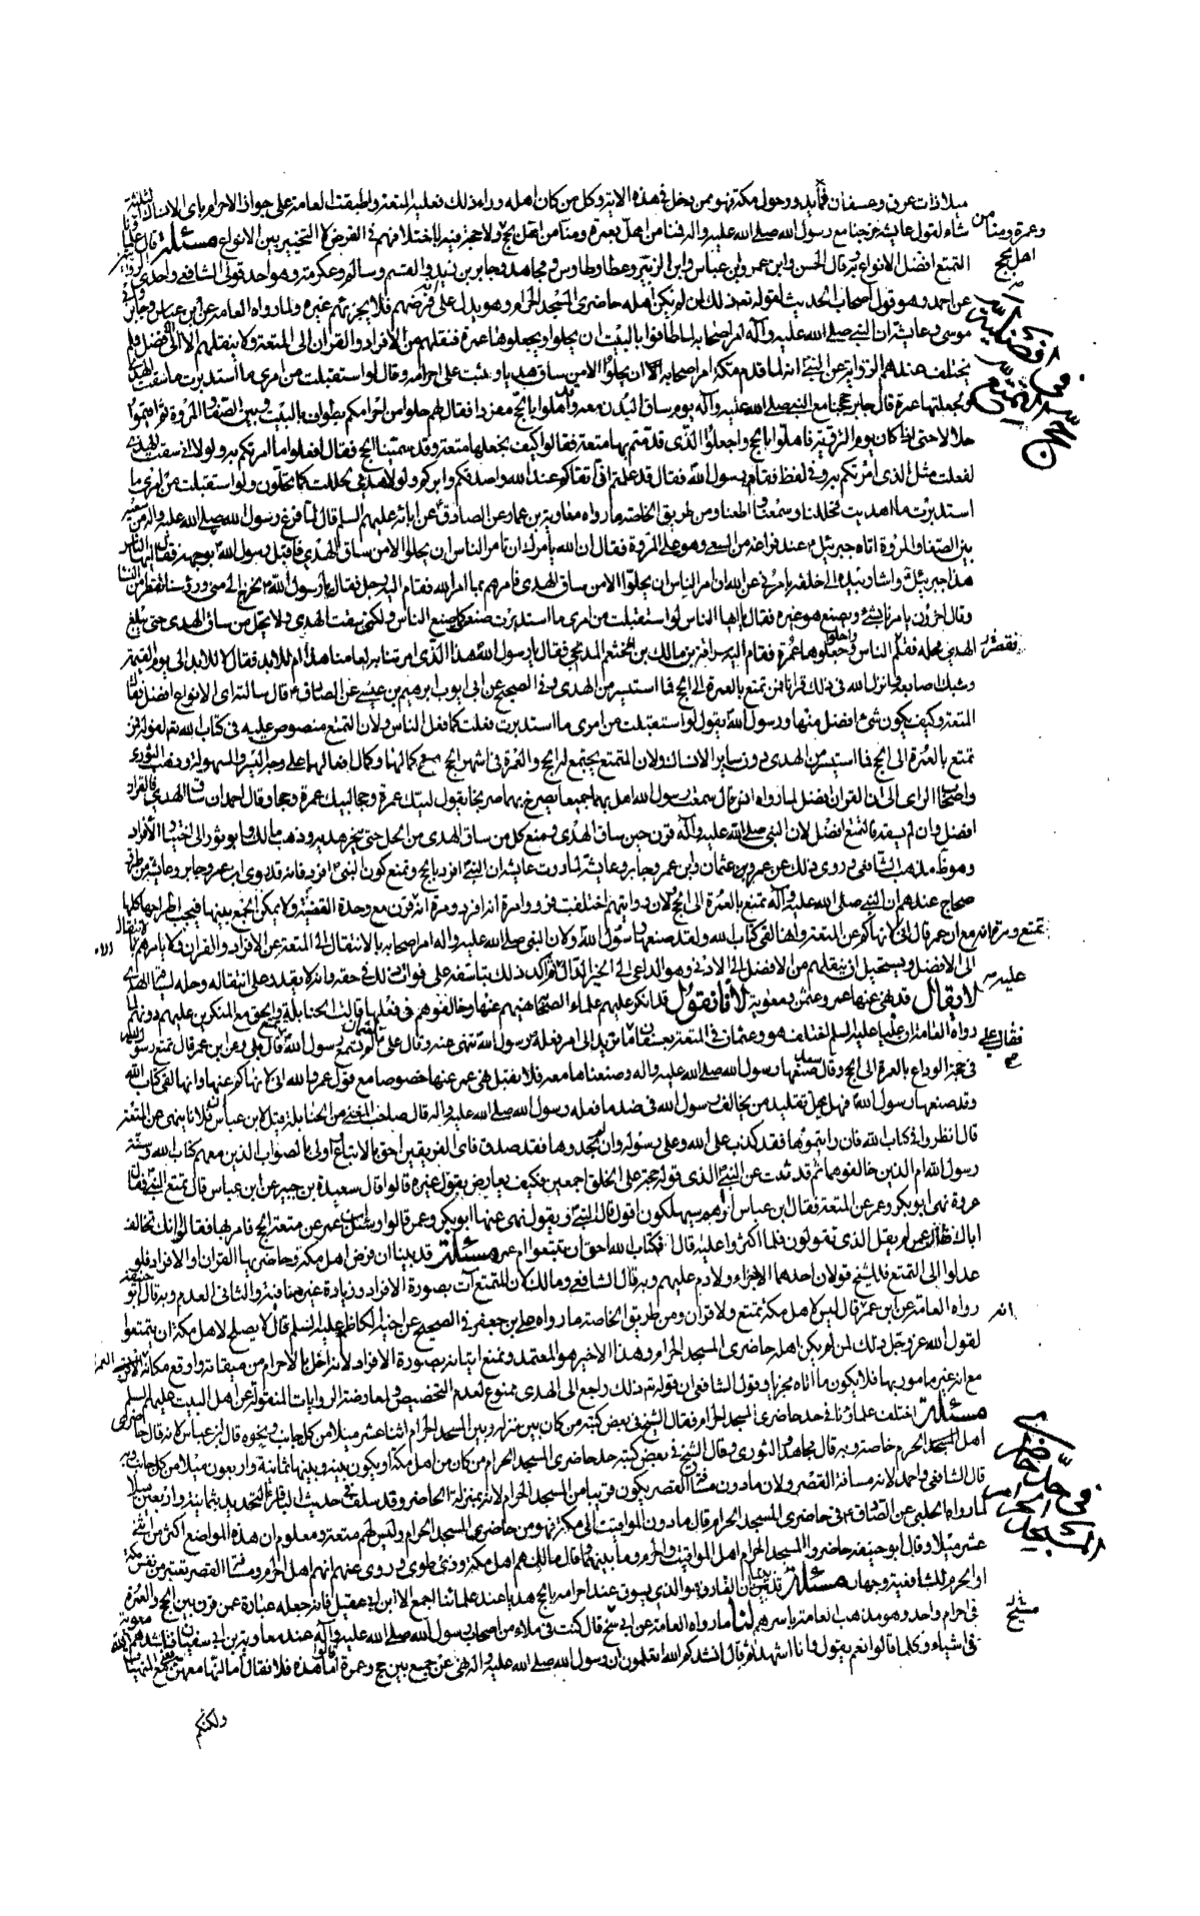 ميلا ذات عرق وعسفان فما يدور حول مكة فهو ممن دخل في هذه الاية وكل من كان اهله وراء ذلك فعليه المتعة واطبقت العامة على جواز الاحرام باى الانساك الثلثة
شاء لقول عايشة خرجنا مع رسول الله صلى الله عليه واله فمنا من اهل بعمرة ومنا من اهل بحج ولا حجة فيه لاختلافهم في الفرض لا التخيير بين الانواع مسئلة قال علماؤنا
وعمرة ومنا من
اهل بحج
التمتع افضل الانواع وبه قال الحسن وابن عمر وابن عباس وابن الزبير وعطا وطاوس ومجاهد وجابر بن زيد والقسم وسالم وعكرمة وهو احد قولى الشافعي واحدى الروايتين
في افضلية
حج التمتع
عن احمد وهو قول اصحاب الحديث لقوله تعالى ذلك لمن لم يكن اهله حاضرى المسجد الحرام وهو يدل على فرضهم فلا يجزئهم غيره ولما رواه العامة عن ابن عباس وجابر وابى
موسى وعايشة ان النبي صلى الله عليه وآله امر اصحابه لما طافوا بالبيت ان يحلوا ويجعلوها عمرة فنقلهم من الافراد والقران الى المتعة ولا ينقلهم الا الى الافضل ولم
يختلف عندهم الرواية عن النبي انه لما قدم مكة امر اصحابه ان يحلوا الا من ساق هديا وثبت على احرامه وقال لو استقبلت من امرى ما استدبرت ما سقت الهدى
ولجعلتها عمرة قال جابر حججنا مع النبي صلى الله عليه وآله يوم ساق البدن معه وقد اهلوا بالحج مفردا فقال لهم حلوا من احرامكم بطواف بالبيت وبين الصفا والمروة ثم اقيموا
حلالا حتى اذا كان يوم التروية فاهلوا بالحج واجعلوا الذى قدمتم بها متعة فقالوا كيف نجعلها متعة وقد سمينا الحج فقال افعلوا ما امرتكم به ولولا انى سقت الهدى
لفعلت مثل الذى امرتكم به وفي لفظ فقام رسول الله فقال قد علمتم انى اتقاكم عند الله واصدقكم وابركم ولولا هديى لحللت كما تحلون ولو استقبلت من امرى ما
استدبرت ما اهديت فحللنا وسمعنا واطعنا ومن طريق الخاصة ما رواه معاوية بن عمار عن الصادق عن ابائه عليهم السلم قال لما فرغ رسول الله صلى الله عليه واله من سعيه
بين الصفا والمروة اتاه جبرئيل عند فراغه من السعى وهو على المروة فقال ان الله يأمرك ان تامر الناس ان يحلوا الا من ساق الهدى فاقبل رسول الله بوجهه فقال ايها الناس
هذا جبرئيل واشار بيده الى خلفه يامرنى عن الله ان امر الناس ان يحلوا الا من ساق الهدى فامرهم بما امر الله فقام اليه رجل فقال يا رسول الله نخرج الى منى ورؤسنا تقطر من النساء
وقال اخرون يامرنا بشئ ويصنع هو غيره فقال يا ايها الناس لو استقبلت من امرى ما استدبرت صنعت كما صنع الناس ولكنى سقت الهدى ولا يحل من ساق الهدى حتى يبلغ
فقصر
الهدى محله فقصر الناس واحلوا وجعلوها عمرة فقام اليه سراقة بن مالك بن جشعم المدلجى فقال يا رسول الله هذا الذى امرتنا به لعامنا هذا ام للابد فقال لا بل للابد الى يوم القيمة
وشبك اصابعه وانزل الله في ذلك قرانا فمن تمتع بالعمرة الى الحج فما استيسر من الهدى وفي الصحيح عن ابى ايوب ابرهيم بن عيسى عن الصادق ع قال سالته اى الانواع افضل فقال
المتعة وكيف يكون شئ افضل منها ورسول الله يقول لو استقبلت من امرى ما استدبرت فعلت كما فعل الناس ولان التمتع منصوص عليه في كتاب الله تعالى لقوله فمن
تمتع بالعمرة الى الحج فما استيسر من الهدى دون ساير الانساك ولان المتمتع يجتمع له الحج والعمرة في اشهر الحج مع كمالهما وكمال افعالهما على وجه اليسر والسهولة وذهب الثورى
واصحاب الراى الى ان القران افضل لما رواه انس قال سمعت رسول الله اهل بهما جميعا يصرخ بهما صراخا يقول لبيك عمرة وحجا لبيك عمرة وحجا وقال احمد ان ساق الهدى فالقران
افضل وان لم يسقه فالتمتع افضل لان النبى صلى الله عليه وآله قرن حين ساق الهدى ومنع كل من ساق الهدى من الحل حتى ينحر هديه وذهب مالك وابو ثور الى اختيار الافراد
وهو ظ مذهب الشافعي وروى ذلك عن عمر وعثمان وابن عمر وجابر وعايشة لما روت عايشة ان النبى افرد بالحج وتمنع كون النبى افرد فانه قد روى ابن عمر وجابر وعايشة من طرق
صحاح عندهم ان النبى صلى الله عليه وآله تمتع بالعمرة الى الحج ولان روايتهم اختلفت فرووا مرة انه افرد ومرة انه قرن مع وحدة القضية ولا يمكن الجمع بينها فيجب اطراحها كلها
تمتع ومرة انه
مع ان عمر قال انى لانهاكم عن المتعة وانها لفي كتاب الله ولقد صنعها رسول الله ولان النبى صلى الله عليه واله امر اصحابه بالانتقال الى المتعة عن الافراد والقران ولا يامرهم الا بالانتقال
الى الافضل ويستحيل ان ينقلهم من الافضل الى الادنى وهو الداعى الى الخير الدال عليه ثم اكد ذلك بتاسفه على فوات ذلك في حقه وانه لا يقدر على انتقاله وحله لسياقه الهدى
عليه
لا يقال قد نهى عنها عمر وعثمن ومعوية لانا نقول قد انكر عليهم علماء الصحابة نهيهم عنها وخالفوهم في فعلها قالت الحنابلة والحق مع المنكرين عليهم دونهم لما
فقال على
رواه العامة ان عليا عليه السلم اختلف هو وعثمان في المتعة بعسفان ما تريد الى امر فعله رسول الله تنهى عنه وقال على لعثمان الم تسمع رسول الله تمتع قال بلى وعن ابن عمر قال تمتع رسول الله
في حجة الوداع بالعمرة الى الحج وقال سعد صنعها رسول الله صلى الله عليه واله وصنعناها معه فلا يقبل نهى عمر عنها خصوصا مع قول عمر والله انى لانهاكم عنها وانها لفي كتاب الله
وقد صنعها رسول الله فهل يحل تقليد من يخالف رسول الله في ضد ما فعله رسول الله صلى الله عليه واله قال صاحب المغنى من الحنابلة قيل لابن عباس ان فلانا ينهى عن المتعة
قال انظروا في كتاب الله فان وجدتموها فقد كذب على الله وعلى رسوله وان لم تجدوها فقد صدق فاى الفريقين احق بالاتباع واولى بالصواب الذين معهم كتاب الله وسنة
رسول الله ام الذين خالفوهما ثم قد ثبت عن النبى الذى قوله حجة على الخلق اجمعين فكيف يعارض بقول غيره قالوا قال سعيد بن جبير عن ابن عباس قال تمتع النبى فقال
عروة نهى ابو بكر وعمر عن المتعة فقال ابن عباس اراهم سيهلكون اقول قال النبى ويقول نهى عنها ابو بكر وعمر قالوا وسئل ابن عمر عن متعة الحج فامر بها فقال انك تخالف
اباك فقال عمر لم يقل الذى تقولون فلما اكثروا عليه قال افكتاب الله احق ان تتبعوا ام عمر مسئلة قد بينا ان فرض اهل مكة وحاضريها القران والافراد فلو
عدلوا الى التمتع فللشيخ قولان احدهما الاجزاء ولا دم عليهم وبه قال الشافعي ومالك لان المتمتع آت بصورة الافراد وزيادة غير منافية والثانى العدم وبه قال ابو حنيفة
انه
رواه العامة عن ابن عمر قال ليس لاهل مكة تمتع ولا قران ومن طريق الخاصة ما رواه على بن جعفر في الصحيح عن اخيه الكاظم عليه السلم قال لا يصلح لاهل مكة ان يتمتعوا
لقول الله عز وجل ذلك لمن لم يكن اهله حاضرى المسجد الحرام وهذا الاخير هو المعتمد ونمنع اتيانه بصورة الافراد لانه اخل بالاحرام من ميقاته واوقع مكانه العمرة
مع انه غير مامور بها فلا يكون ما اتاه مجزيا وقول الشافعي ان قوله تعالى ذلك راجع الى الهدى ممنوع لعدم التخصيص ولمعارضة الروايات المنقولة عن اهل البيت عليهم السلم
مسئلة اختلف علماؤنا في حد حاضرى المسجد الحرام فقال الشيخ في بعض كتبه من كان بين منزله وبين المسجد الحرام اثنا عشر ميلا من كل جانب ونحوه قال ابن عباس لانه قال حاضرى
في حد حاضرى
المسجد الحرام
اهل المسجد الحرم خاصة وبه قال مجاهد والثورى وقال الشيخ في بعض كتبه حد حاضرى المسجد الحرام من كان من اهل مكة او يكون بينه وبينها ثمانية واربعون ميلا من كل جانب وبه
قال الشافعي واحمد لانه مسافة القصر ولان ما دون مسافة القصر يكون قريبا من المسجد الحرام لانه بمنزلة الحاضر وقد سلف في حديث الباقر التحديد بثمانية واربعين ميلا
لما رواه الحلبى عن الصادق ع في حاضرى المسجد الحرام قال ما دون المواقيت الى مكة فهو من حاضرى المسجد الحرام وليس لهم متعة ومعلوم ان هذه المواضع اكثر من اثنى
عشر ميلا وقال ابو حنيفة حاضروا المسجد الحرام اهل المواقيت والحرم وما بينهما وقال مالك هم اهل مكة وذى طوى وروى عنه انهم اهل الحرم ومسافة القصر تعتبر من نفس مكة
او الحرم للشافعية وجهان مسئلة قد بينا ان القارن هو الذى يسوق عند احرامه بالحج هديا عند علمائنا اجمع الا ابن ابى عقيل فانه جعله عبارة عمن قرن بين الحج والعمرة
في احرام واحد وهو مذهب العامة باسرهم لنا ما رواه العامة عن ابى شيخ قال كنت في ملاء من اصحاب رسول الله صلى الله عليه وآله عند معاوية بن ابى سفيان فناشدهم الله
في اشياء وكلما قالوا نعم يقول وانا اشهد ثم قال انشدكم الله اتعلمون ان رسول الله صلى الله عليه واله نهى عن جمع بين حج وعمرة قالوا اما هذه فلا فقال اما انها معهن
ولكنكم